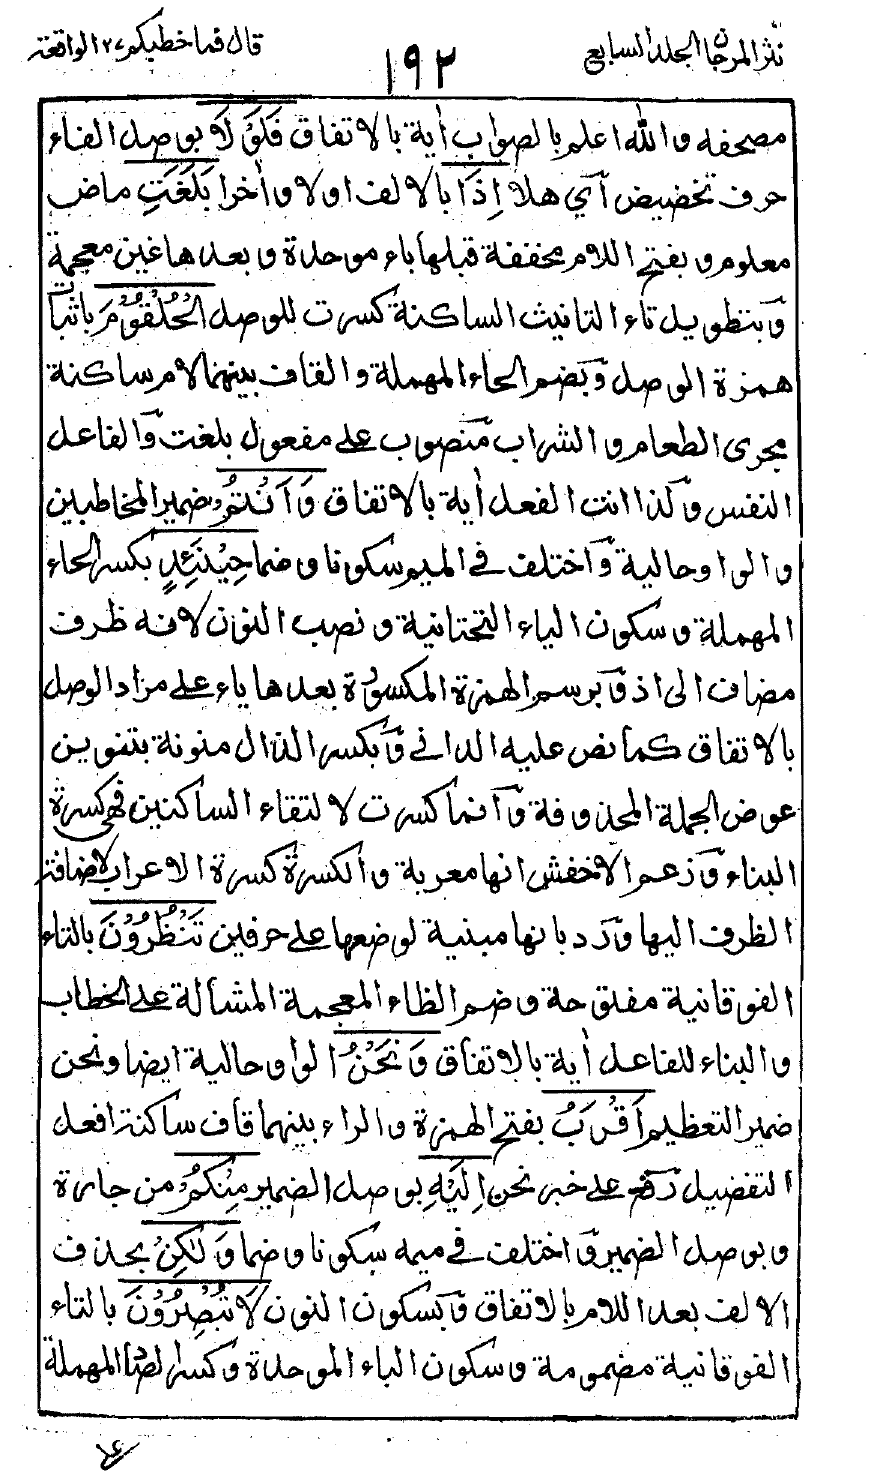 نثر المرجان الجلد السابع
١٩٢
قال فما خطبكم ٢٧ الواقعة
مصحفه والله اعلم بالصواب أية بالاتفاق فَلَوْ لَا بوصل الفاء
حرف تخضيض أي هلا إِذَا بالالف اولا وأخرا بَلَغَتِ ماض
معلوم وبفتح اللام مخففة قبلها باء موحدة وبعدها غين معجمة
وبتطويل تاء التانيث الساكنة كسرت للوصل الْحُلْقُوْمَ باثبات
همزة الوصل وبضم الحاء المهملة والقاف بينهما لام ساكنة
مجرى الطعام والشراب منصوب على مفعول بلغت والفاعل
النفس وكذا انت الفعل أية بالاتفاق وَأَنْتُمْ ضمير المخاطبين
والواو حالية واختلف في الميم سكونا وضما حِيْنَئِذٍ بكسر الحاء
المهملة وسكون الياء التحتانية ونصب النون لانه ظرف
مضاف الى اذ وبرسم الهمزة المكسورة بعدها ياء على مراد الوصل
بالاتفاق كما نص عليه الداني وبكسر الذال منونة بتنوين
عوض الجملة المحذوفة وانما كسرت لالتقاء الساكنين فهي كسرة
البناء وزعم الاخفش انها معربة والكسرة كسرة الاعراب لاضافة
الظرف اليها ورد بانها مبنية لوضعها على حرفين تَنْظُرُوْنَ بالتاء
الفوقانية مفتوحة وضم الظاء المعجمة المشالة على الخطاب
والبناء للفاعل أية بالاتفاق وَنَحْنُ الواو حالية ايضا ونحن
ضمير التعظيم أَقْرَبُ بفتح الهمزة والراء بينهما قاف ساكنة افعل
التفضيل رفع على خبر نحن اِلَيْهِ بوصل الضمير مِنْكُمْ من جارة
وبوصل الضمير واختلف في ميمه سكونا وضما وَلٰكِنْ بحذف
الالف بعد اللام بالاتفاق وبسكون النون لَا تُبْصِرُوْنَ بالتاء
الفوقانية مضمومة وسكون الباء الموحدة وكسر الصاد المهملة
على